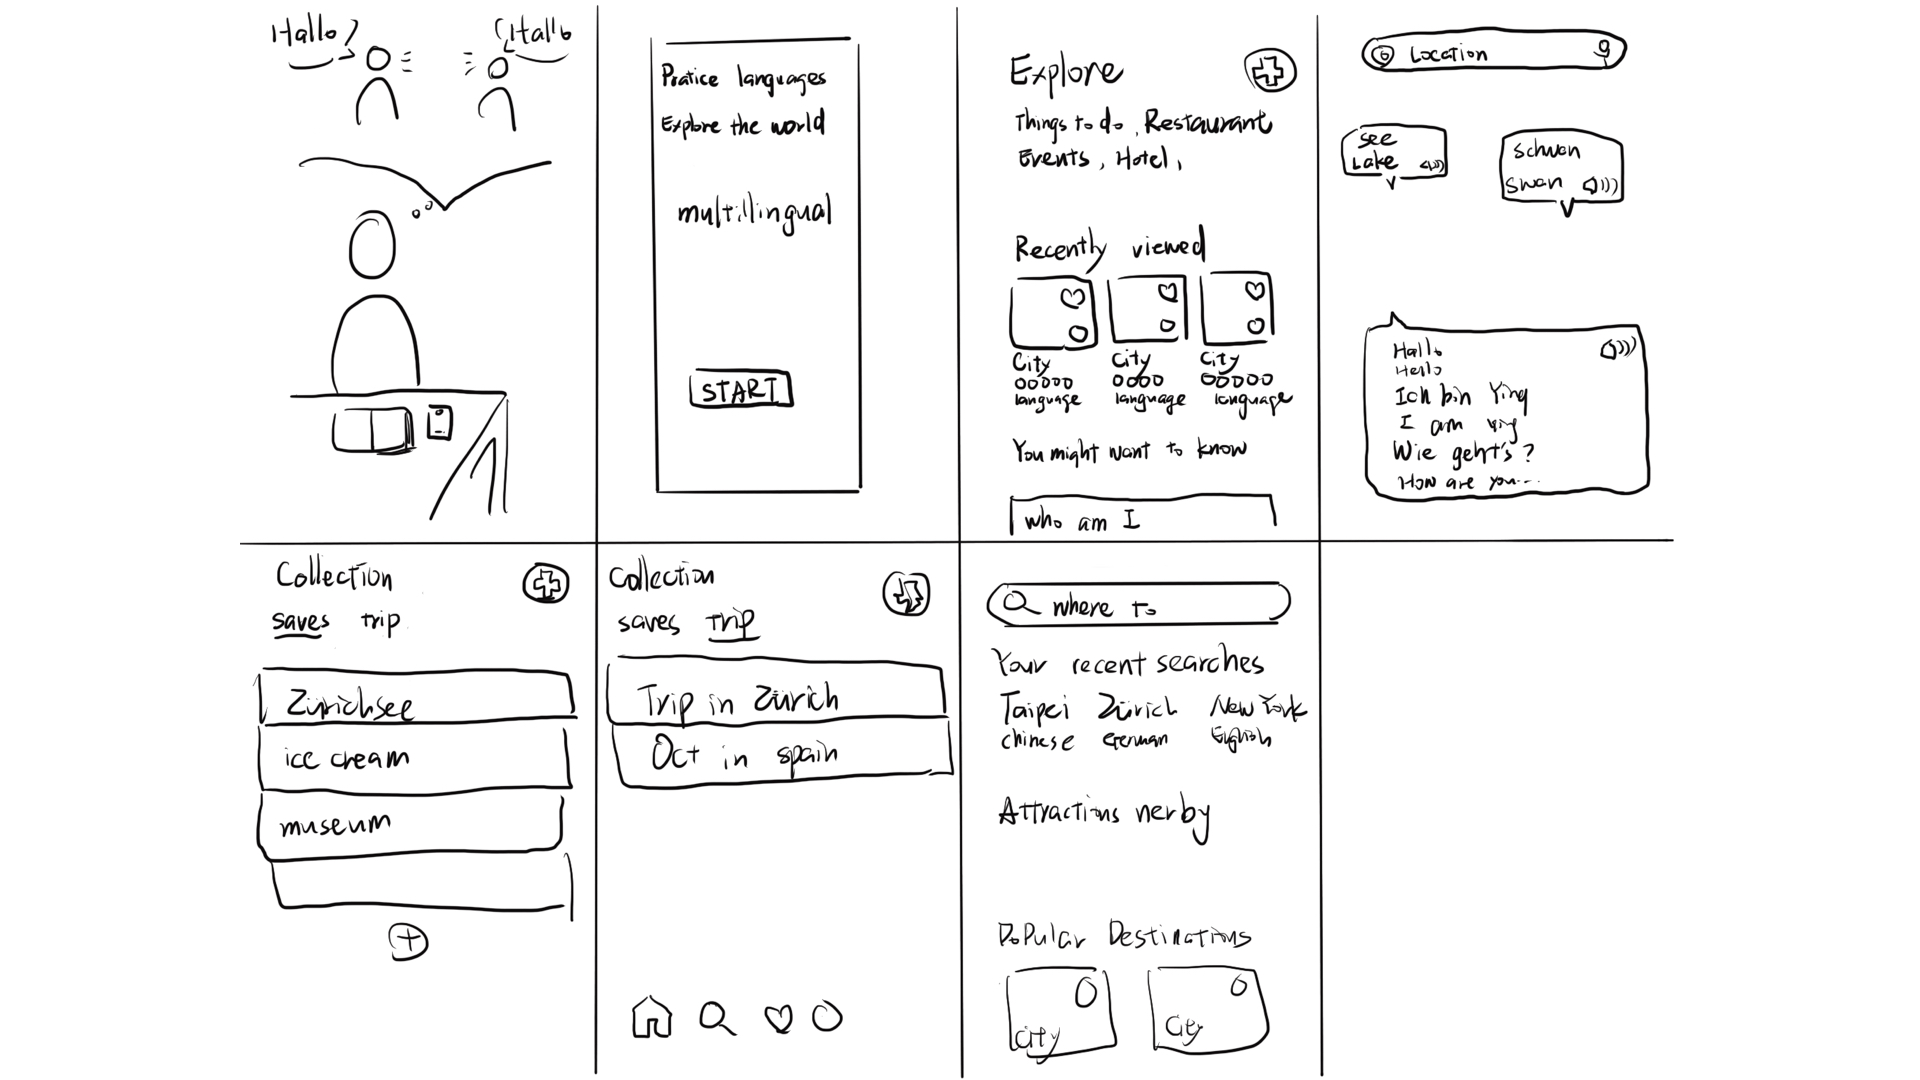 Hallo
Hallo
Pratice languages
Explore the world
multillingual
START
Explore
Things to do, Restaurant
Events, Hotel,
Recently viewed
City City City
language language language
You might want to know
who am I
Location
See
Lake
Schwan
Swan
Hallo
Hello
Ich bin Ying
I am Ying
Wie geht's?
How are you...
Collection
saves trip
Zürichsee
ice cream
museum
Collection
saves trip
Trip in Zürich
Oct in spain
where to
Your recent searches
Taipei Zürich New York
chinese German English
Attractions nerby
Popular Destinations
City City